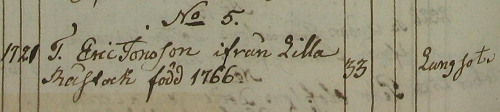 No 5.
1721 T. Eric Jonsson ifrån Lilla 33 Lungsot.
Råstock född 1766.